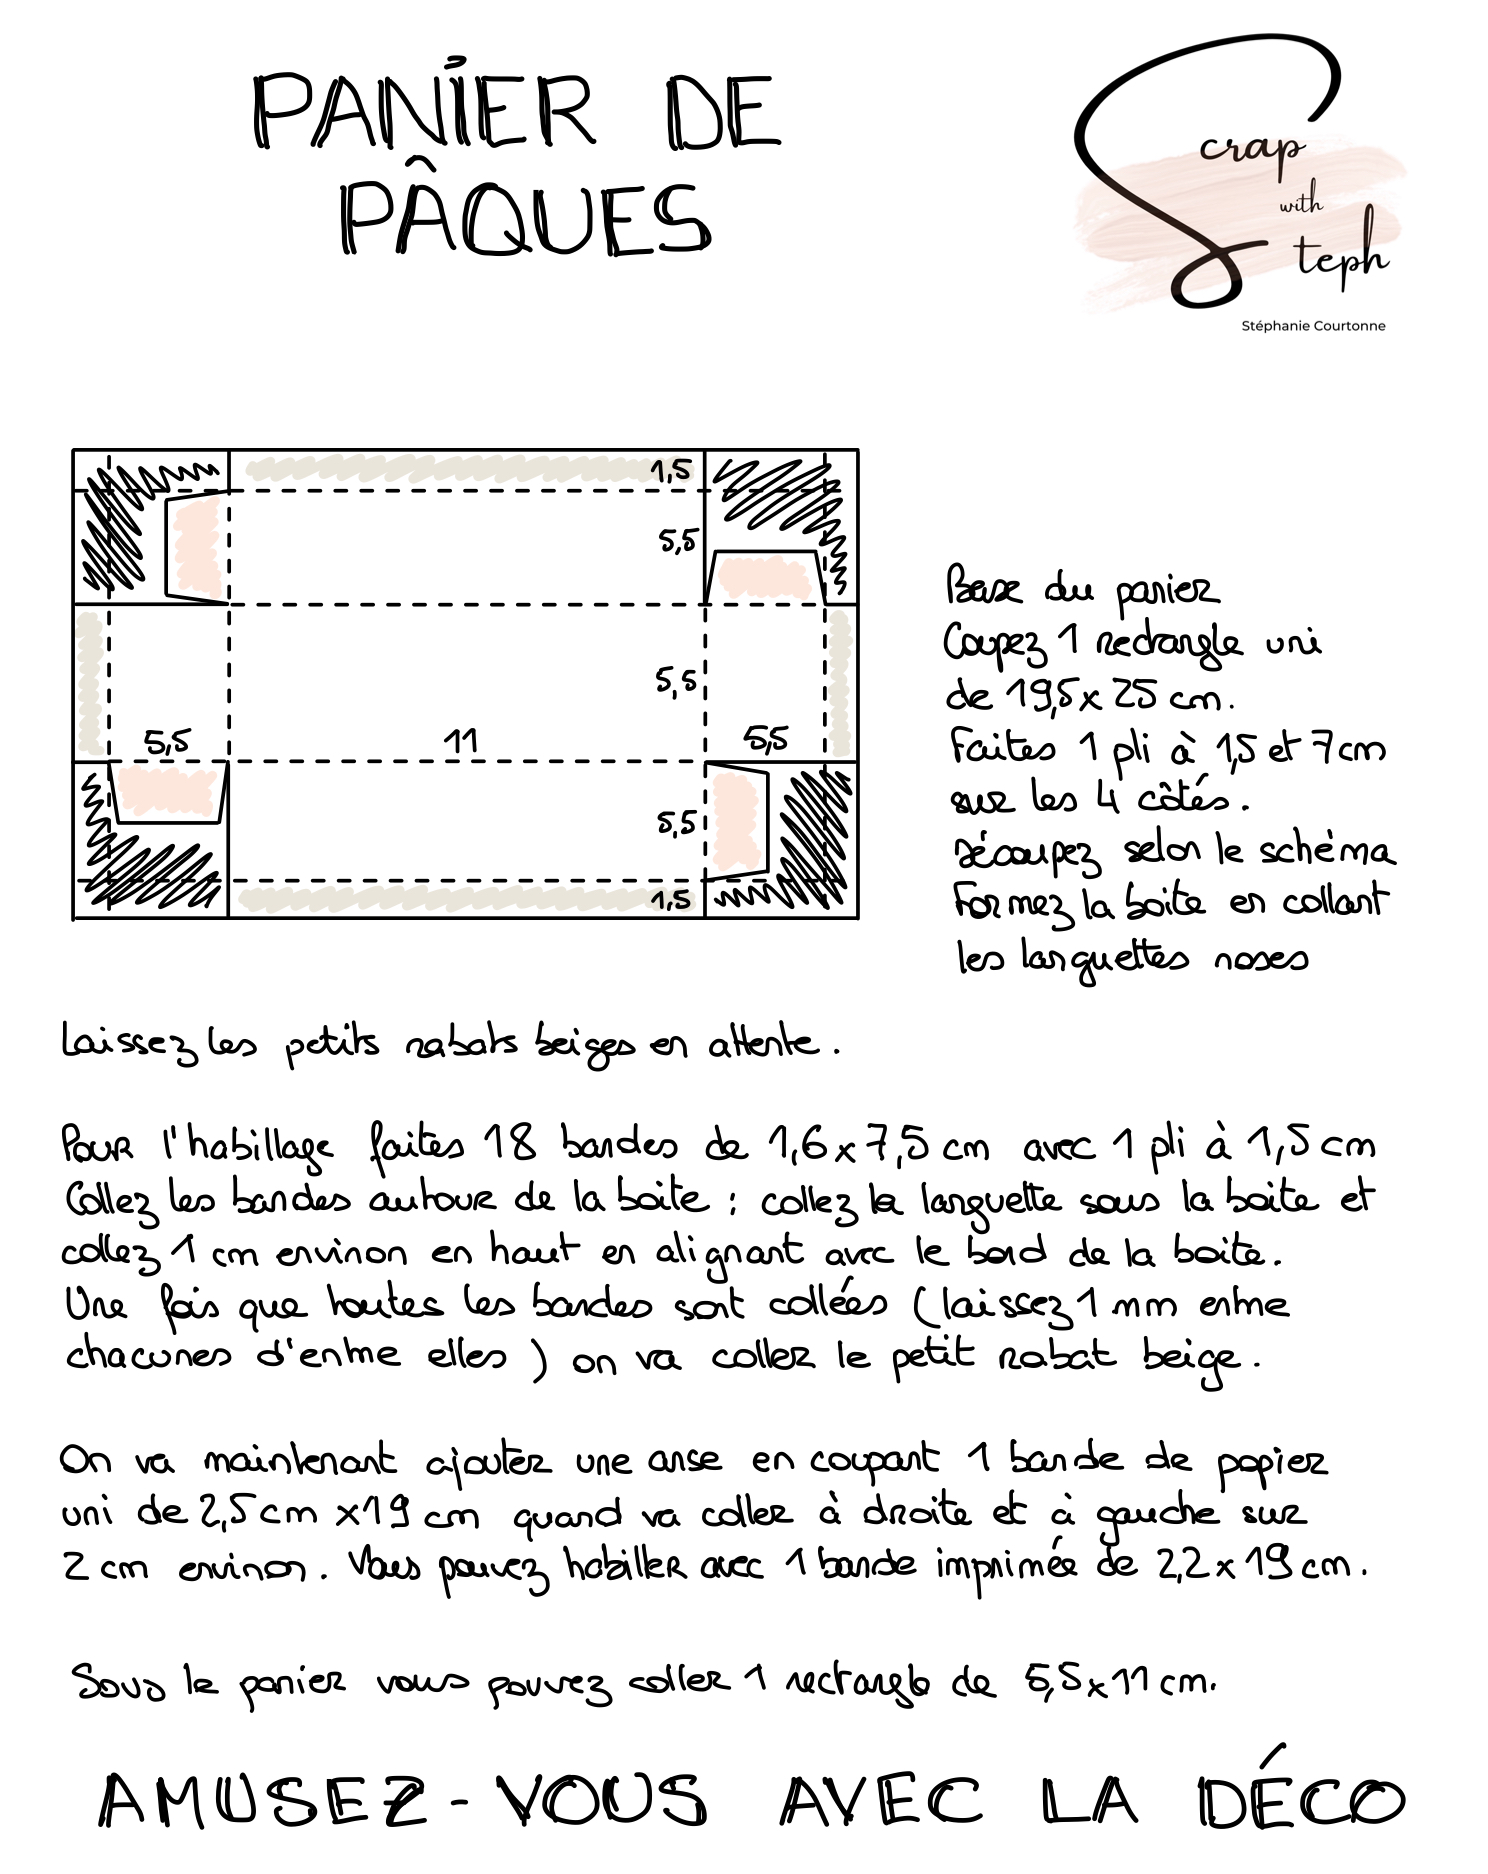 PANIER DE
PÂQUES
Scrap
with
Steph
Stéphanie Courtonne
1,5
5,5
5,5
5,5
11
5,5
5,5
1,5
Base du panier
Coupez 1 rectangle uni
de 19,5 x 25 cm.
Faites 1 pli à 1,5 et 7cm
sur les 4 côtés.
Découpez selon le schéma
Formez la boite en collant
les languettes roses
Laissez les petits rabats beiges en attente.
Pour l'habillage faites 18 bandes de 1,6 x 7,5 cm avec 1 pli à 1,5 cm
Collez les bandes autour de la boite : collez la languette sous la boite et
collez 1 cm environ en haut en alignant avec le bord de la boite.
Une fois que toutes les bandes sont collées (laissez 1 mm entre
chacunes d'entre elles) on va coller le petit rabat beige.
On va maintenant ajouter une anse en coupant 1 bande de papier
uni de 2,5 cm x 19 cm quand va coller à droite et à gauche sur
2 cm environ. Vous pouvez habiller avec 1 bande imprimée de 2,2 x 19 cm.
Sous le panier vous pouvez coller 1 rectangle de 5,5 x 11 cm.
AMUSEZ-VOUS AVEC LA DÉCO